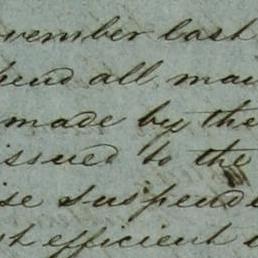 ovember last
hend all man
made by the
issued to the
ise suspend
st efficient